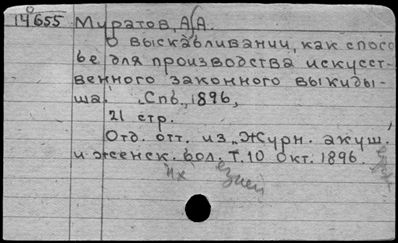 14655 Муратов, А.А.
О выскабливании, как спосо-
бе для производства искусст-
венного законного выкиды-
ша. Спб., 1896,
21 стр.
Отд. отт. из „Журн. акуш.
и женск. бол. Т.10 окт. 1896.
их езней